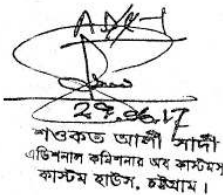 29.06.17
শওকত আলী সাদী
এডিশনাল কমিশনার অব কাস্টমস
কাস্টম হাউস, চট্টগ্রাম।